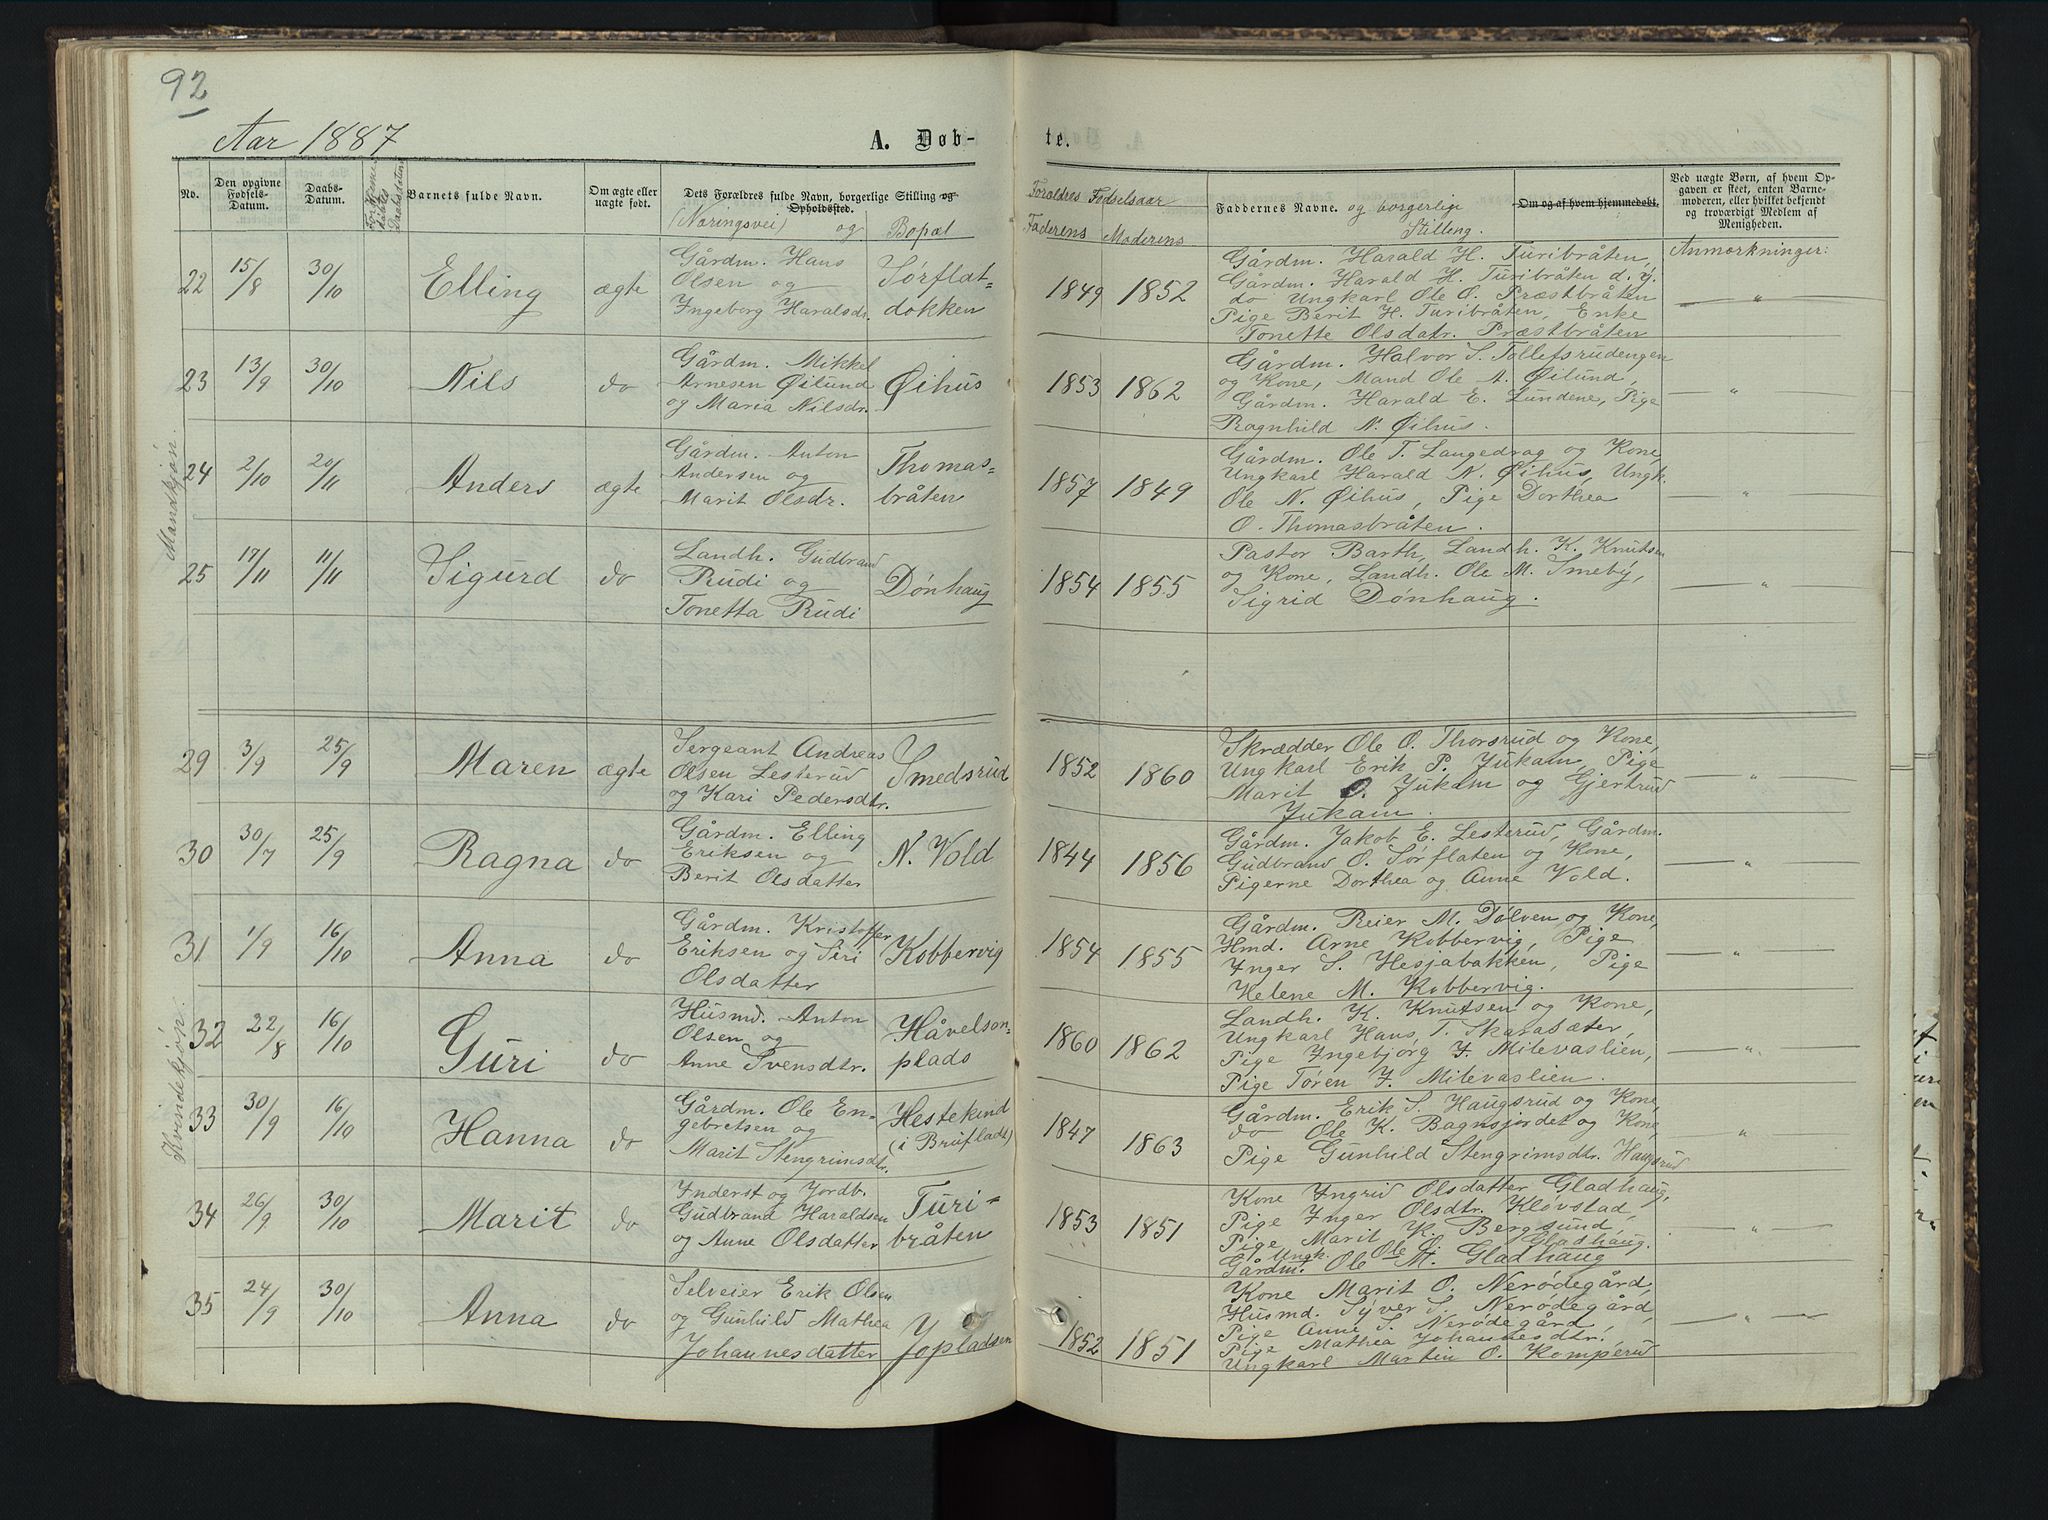 92
Aar 1887
A. Døb-
te.
No.
Den opgivne Fødsels-Datum.
Daabs-Datum.
Barnets fulde Navn.
Om ægte eller uægte født.
Dets Forældres fulde Navn, borgerlige Stilling og Opholdssted.
(Næringsvei) og Bopæl
Forældres Fødselsaar
Faderens Moderens
Faddernes Navne. og borgerlige Stilling.
Om og af hvem hjemmedøbt.
Ved uægte Børn, af hvem Opgaven er skeet, enten Barnemoderen, eller hvilket bekjendt og troværdigt Medlem af Menigheden.
Anmærkninger:
Mandkjøn.
22 15/8 30/10 Elling ægte
Gårdm. Hans
Olsen og
Ingeborg Haralsdr.
Sørflat-
dokken
1849 1852
Gårdm. Harald H. Turibråten,
Gårdm. Harald H. Turibråten d. y.
do Ungkarl Ole O. Præstbråten
Pige Berit H. Turibråten, Enke
Tonette Olsdatr. Præstbråten
— " —
23 13/9 30/10 Nils do
Gårdm. Mikkel
Arnesen Øilund
og Maria Nilsdr.
Øihus
1853 1862
Gårdm. Halvor S. Tollefsrudengen
og Kone, Mand Ole A. Øilund,
Gårdm. Harald E. Lundene, Pige
Ragnhild N. Øihus.
— "
24 2/10 20/11 Anders ægte
Gårdm. Anton
Andersen og
Marit Olsdr.
Thomas-
bråten
1857 1849
Gårdm. Ole T. Langedrag og Kone,
Ungkarl Harald N. Øihus, Ungk.
Ole N. Øihus, Pige Dorthea
O. Thomasbråten.
— "
25 17/11 11/11 Sigurd do
Landh. Gudbrand
Rudi og
Tonetta Rudi
Dønhaug
1854 1855
Pastor Barth, Landh. K. Knutsen
og Kone, Landh. Ole M. Smeby,
Sigrid Dønhaug.
— "
Kvindekjøn.
29 3/9 25/9 Maren ægte
Sergeant Andreas
Olsen Lesterud
og Kari Pedersdtr.
Smedsrud
1852 1860
Skrædder Ole O. Thorsrud og Kone,
Ungkarl Erik P. Jukam, Pige
Marit O. Jukam og Gjertrud
Jukam.
— "
30 30/7 25/9 Ragna do
Gårdm. Elling
Eriksen og
Berit Olsdatter
N. Vold
1844 1856
Gårdm. Jakob E. Lesterud, Gårdm.
Gudbrand O. Sørflaten og Kone,
Pigerne Dorthea og Anne Vold.
— "
31 1/9 16/10 Anna do
Gårdm. Kristoffer
Eriksen og Siri
Olsdatter
Kobbervig
1854 1855
Gårdm. Reier M. Dølven og Kone,
Hmd. Arne Kobbervig, Pige
Inger S. Hesjabakken, Pige
Helene M. Kobbervig.
— "
32 22/8 16/10 Guri do
Husmd. Anton
Olsen og
Anne Svensdtr.
Håvelson-
plads
1860 1862
Landh. K. Knutsen og Kone,
Ungkarl Hans T. Skarasæter,
Pige Ingebjørg J. Milevaslien,
Pige Tøren J. Milevaslien.
— "
33 30/9 16/10 Hanna do
Gårdm. Ole En-
gebretsen og
Marit Stengrimsdtr.
Hestekind
(i Brufladt)
1847 1863
Gårdm. Erik S. Haugsrud og Kone,
do Ole K. Bagnsjordet og Kone,
Pige Gunhild Stengrimsdtr. Haugsrud
"
34 26/9 30/10 Marit do
Inderst og Jordb.
Gudbrand Haraldsen
og Anne Olsdatter
Turi-
bråten
1853 1851
Kone Ingrid Olsdatter Gladhaug,
Pige Inger Olsdtr. Kløvstad,
Pige Marit K. Bergsund,
Ungk. Ole O. Gladhaug.
Gårdm. Ole M. Gladhaug
— "
35 24/9 30/10 Anna do
Selveier Erik Olsen
og Gunhild Mathea
Johannesdatter
Jopladsen
1852 1851
Kone Marit O. Nerødegård,
Husmd. Syver S. Nerødegård,
Pige Anne S. Nerødegård,
Pige Mathea Johannesdtr.,
Ungkarl Martin O. Komperud
— " —